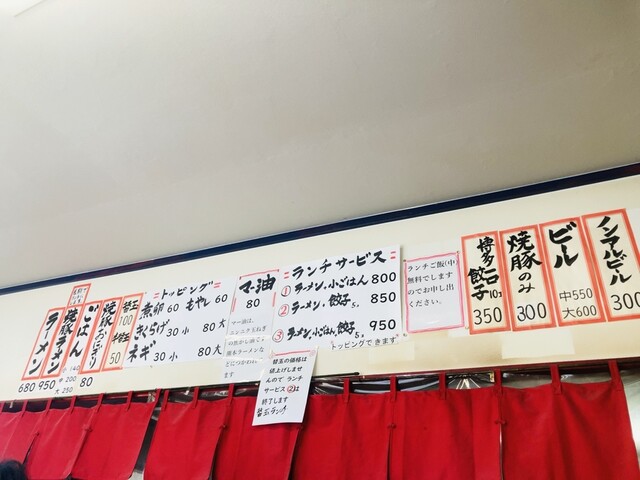 ラーメン
680
焼豚ラーメン
950
ごはん
小 80
中 200
大 250
焼豚おにぎり
140
替玉
100
半替玉
50
=トッピング=
煮卵 60 もやし 60
きくらげ 30 小 80 大
ネギ 30 小 80 大
マー油
80
マー油は、
ニンニクと玉ねぎ
の焦がし油で、
熊本ラーメンな
どにつかわれ
ます
=ランチサービス=
① ラーメン、小ごはん 800
② ラーメン、餃子5ヶ 850
③ ラーメン、小ごはん、餃子5ヶ 950
トッピングできます
替玉の価格は
値上げしませ
んので ランチ
サービス②は
終了します
替玉ランチ
ランチご飯(中)
無料でします
のでお申し出
ください。
博多一口餃子
10ヶ
350
焼豚のみ
300
ビール
中550
大600
ノンアルビール
300